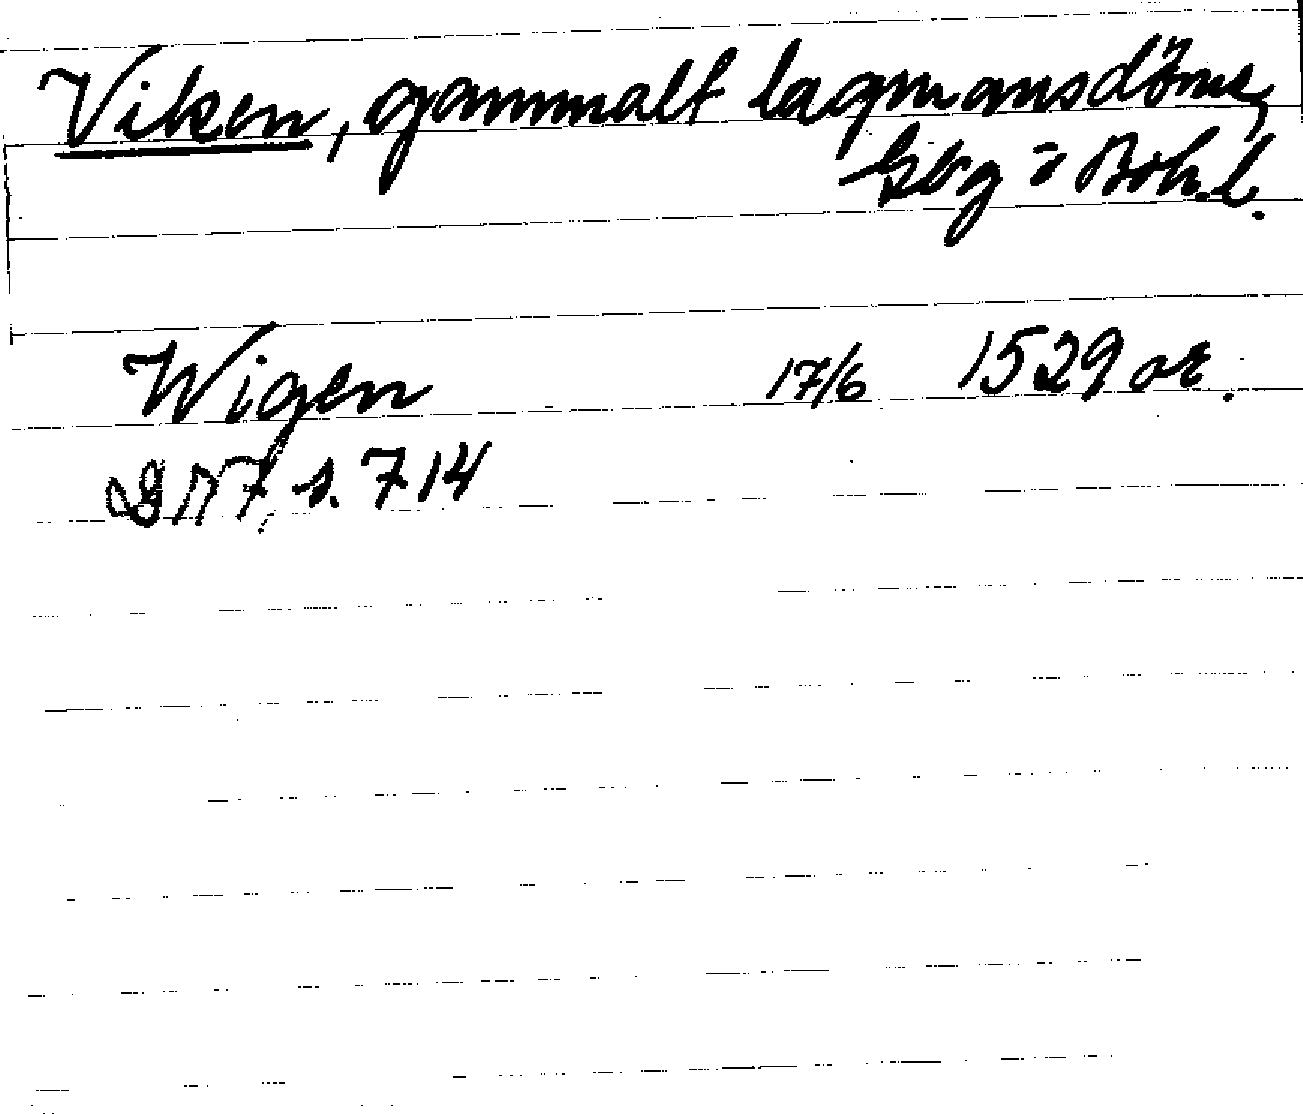 Viken, gammalt lagmansdöme,
Gbg o Boh. l.
Wigen 17/6 1529 or.
DN 7, s. 714